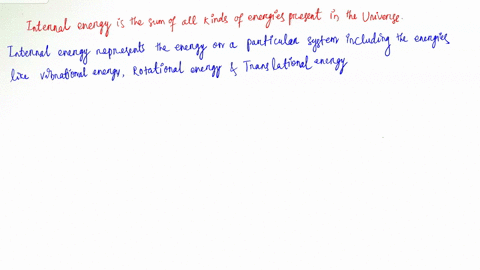 Internal energy is the sum of all kinds of energies present in the Universe.
Internal energy represents the energy on a particular system including the energies
like vibrational energy, Rotational energy & Translational energy